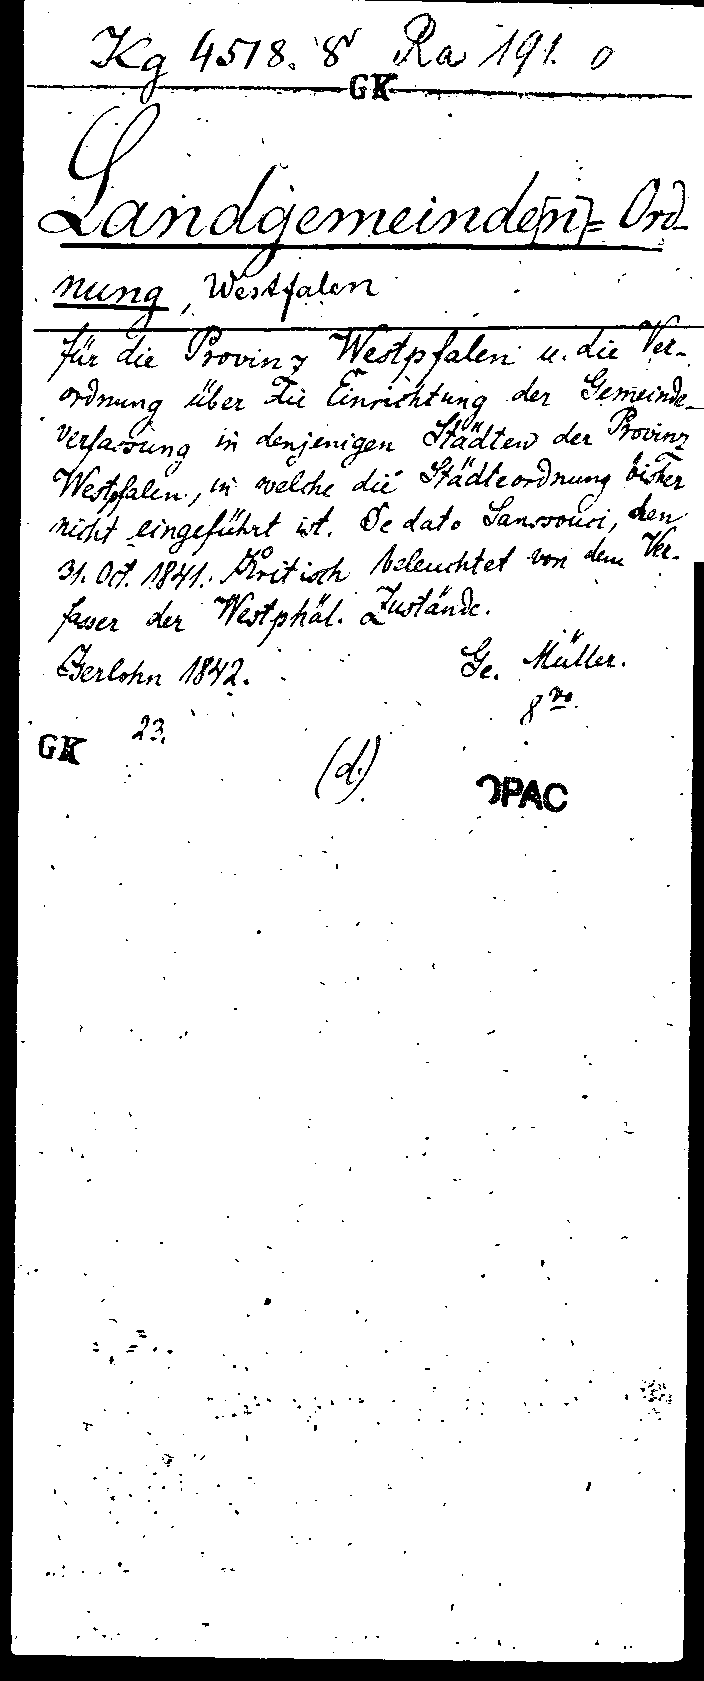 Kg 4518. 8° Ra 191. o
GK
Landgemeinde[n]= Ord-
nung, Westfalen
für die Provinz Westpfalen u. die Ver-
ordnung über die Einrichtung der Gemeinde-
verfassung in denjenigen Städten der Provinz
Westpfalen, in welche die Städteordnung bisher
nicht eingeführt ist. De dato Sanssouci, den
31. Oct. 1841. Kritisch beleuchtet von dem Ver-
fasser der Westphäl. Zustände.
Iserlohn 1842. Ge. Müller.
8vo.
GK 23.
(d.) OPAC